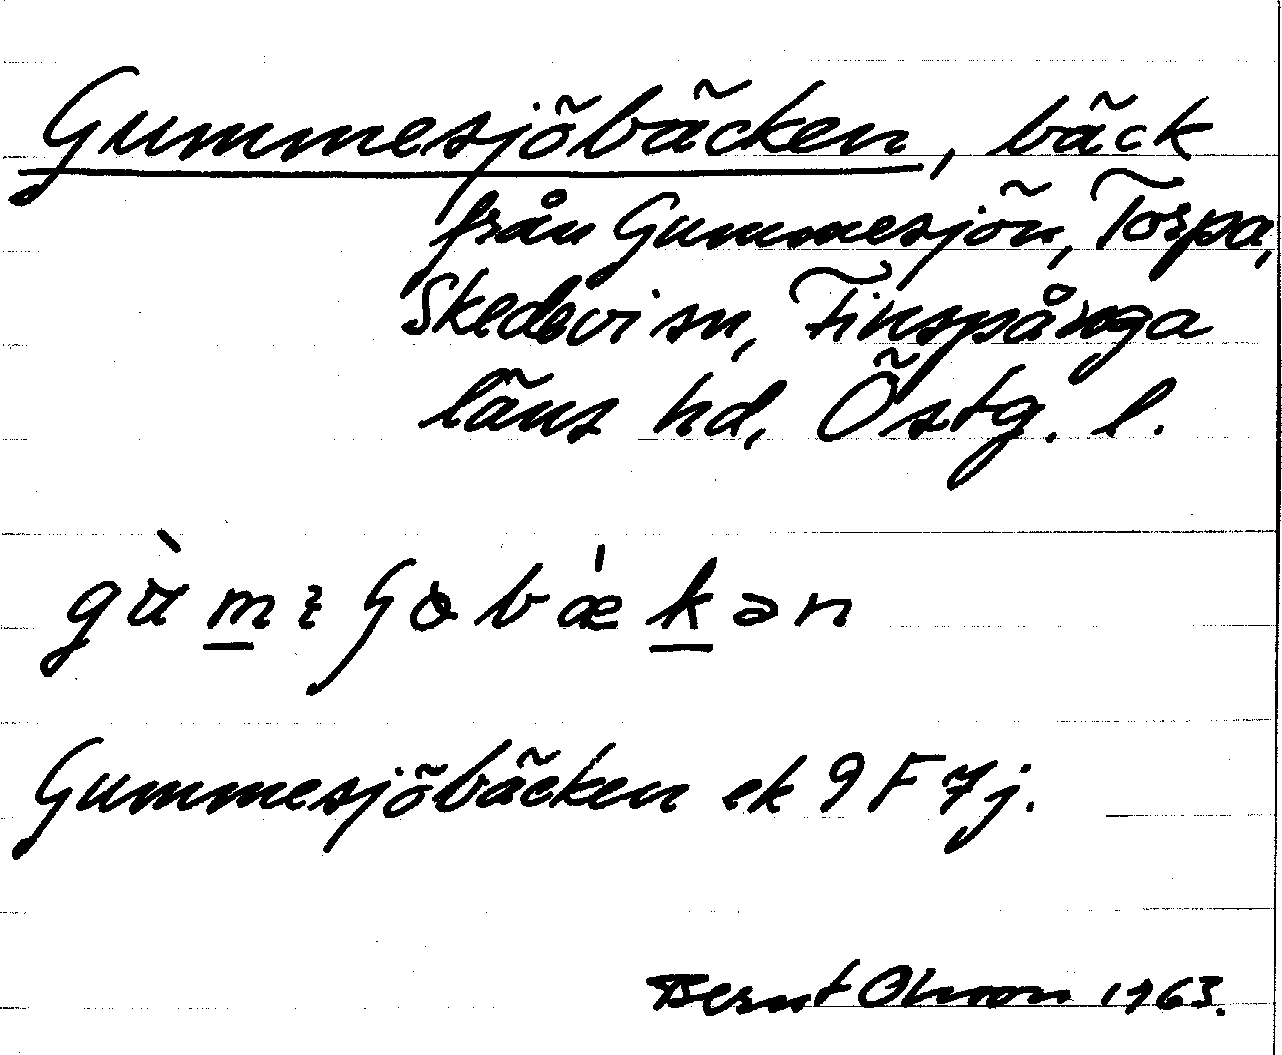 Gummesjöbäcken, bäck
från Gummesjön, Torpa,
Skedevi sn, Finspånga
läns hd, Östg. l.
Gummesjöbäcken ek 9F 7j.
Bernt Olsson 1963.